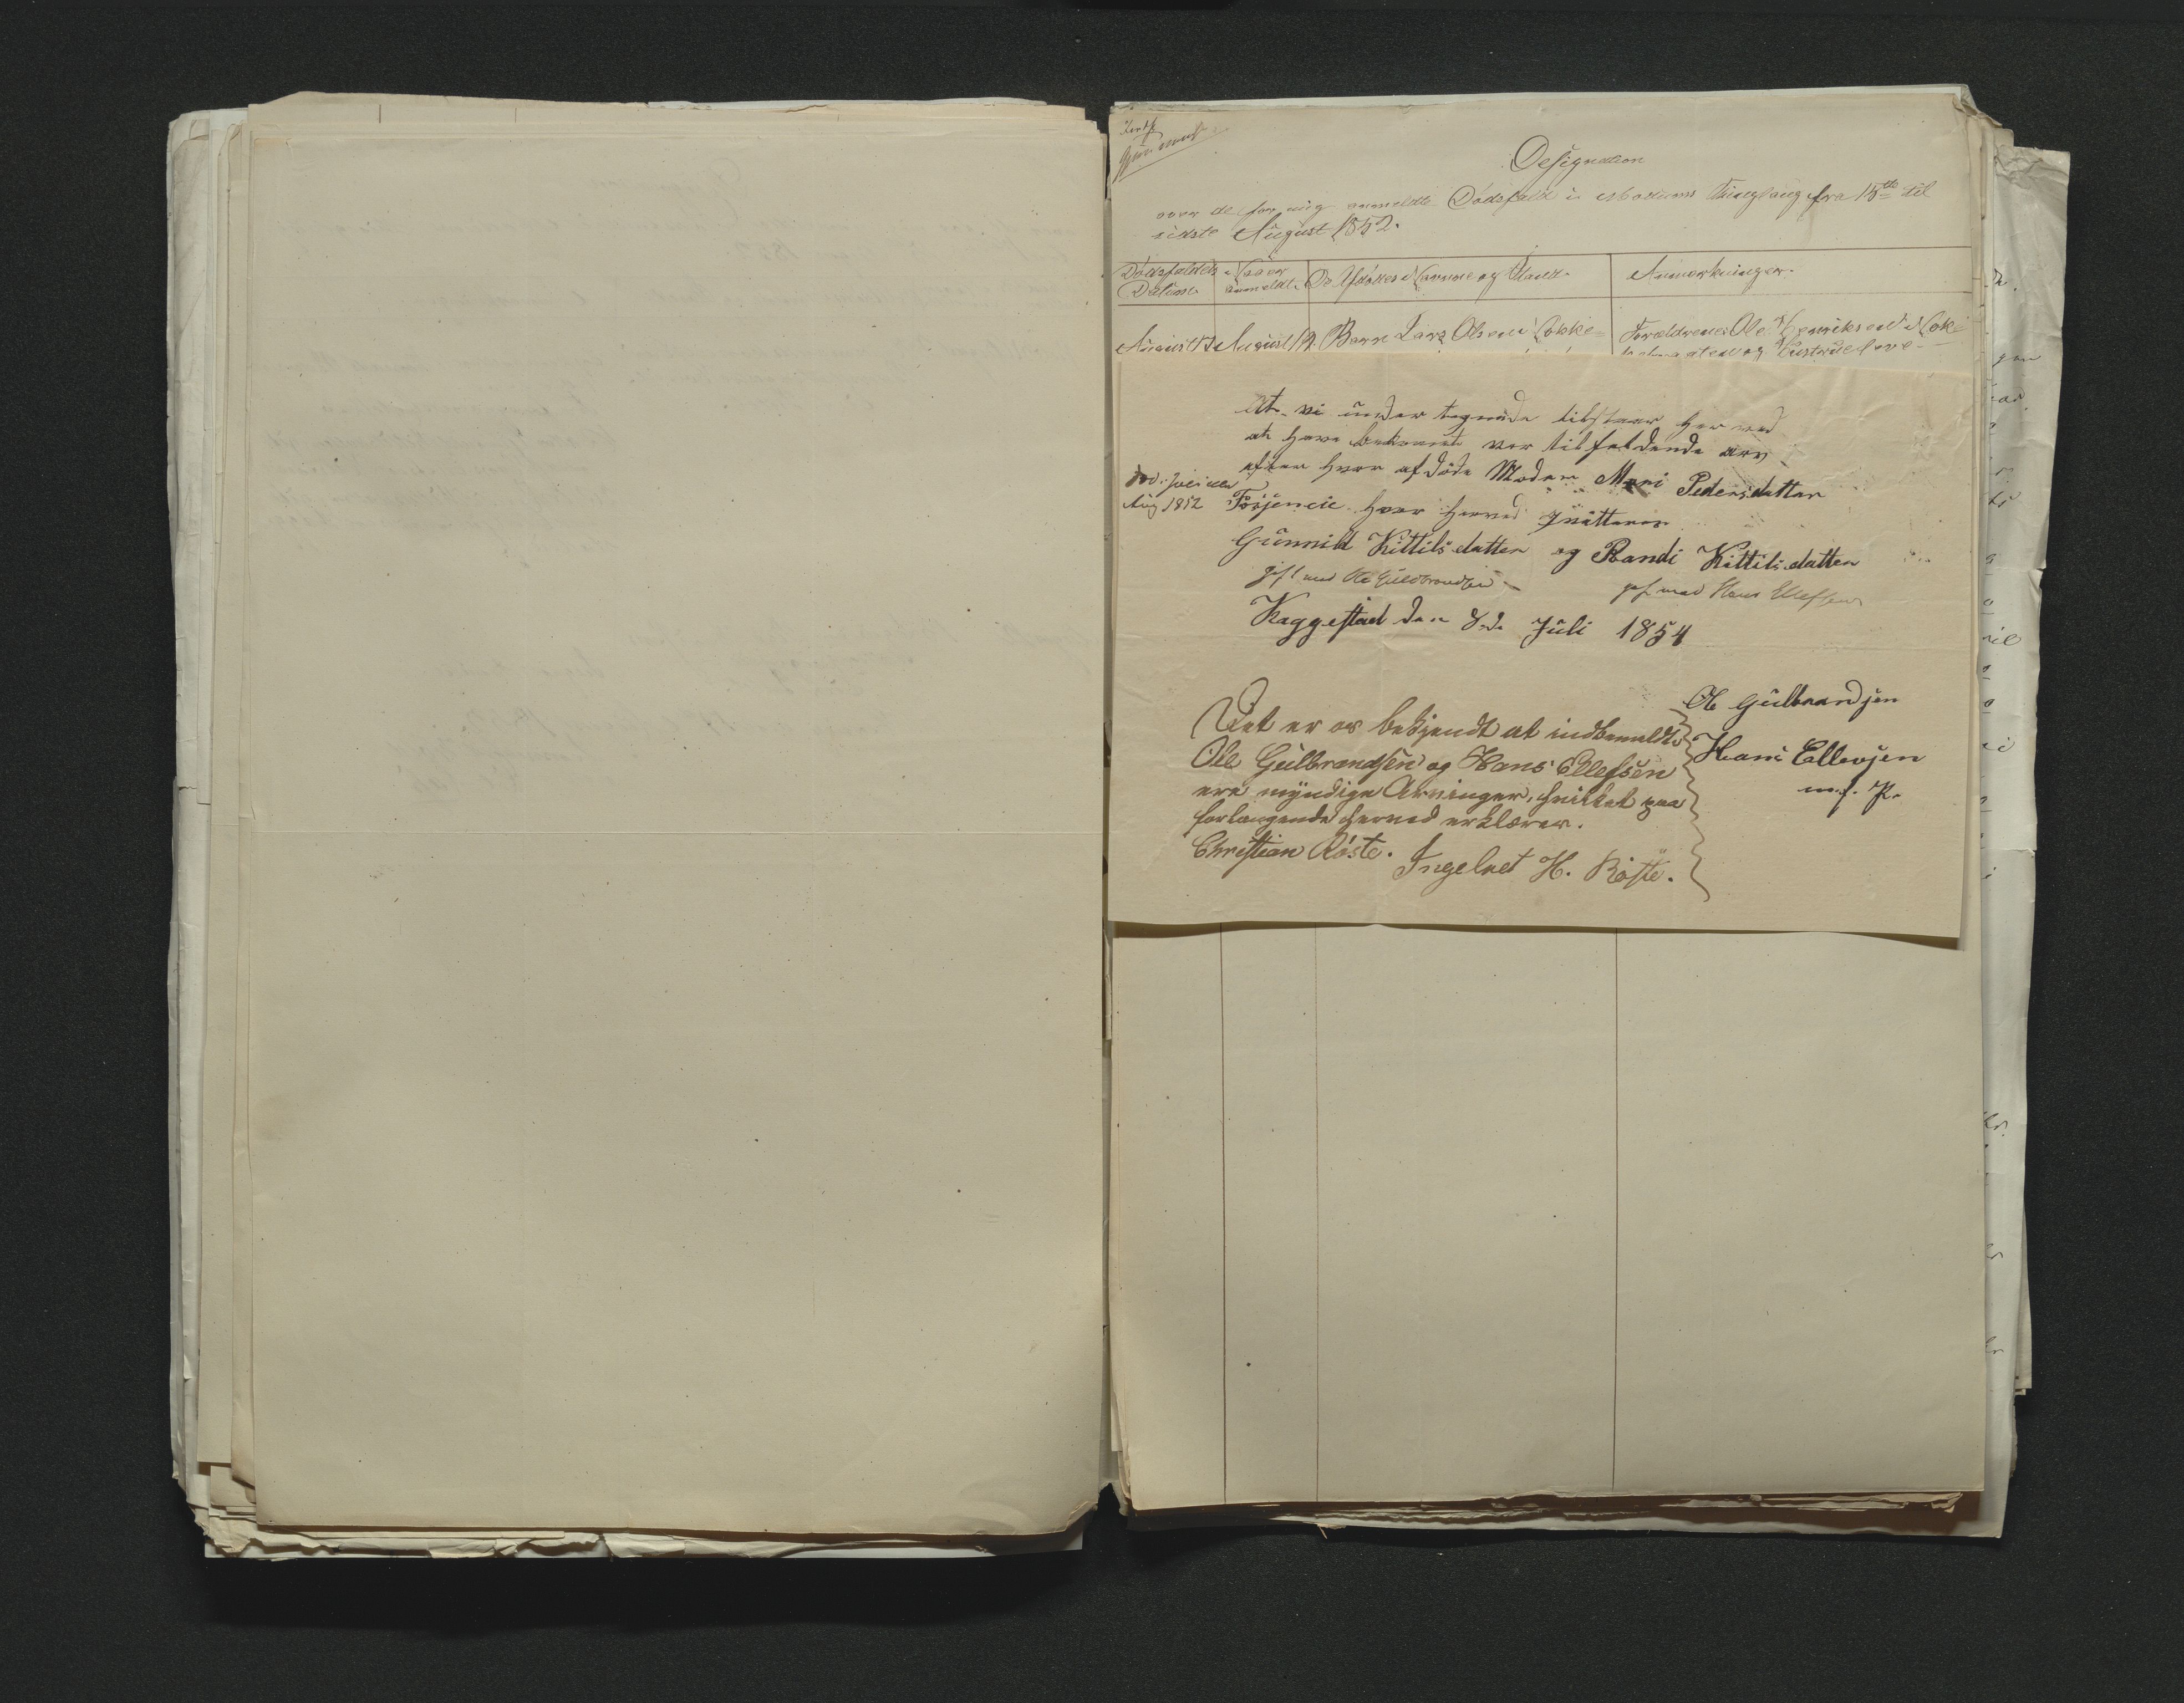 Designation
over de for mig anmeldte Dødsfald i Modums Thinglaug fra 15de til
sidste August 1852.
Dødsfaldets Datum. Naar anmeldt. De Afdødes Navne og Stand. Anmærkninger.
August August 19 Barn Lars Olsen Forældrene Ole Henriksen
og Hustrue
At vi under tegnede tilstaar her ved
at have bekommet vor tilfaldende arv
efter hvor afdøde Moder Mari Pedersdatter
død
Aug 1852
hvor herved qvitteres
Gunnild Kittilsdatter og Randi Kittilsdatter
gift med Ole Guldbrandsen gift med Hans Ellefsen
Kaggestad den 8de Juli 1854
Ole Gulbrandsen
Hans Ellevsen
m. f. P.
Det er os bekjendt at indbemeldte
Ole Gulbrandsen og Hans Ellefsen
ere myndige Arvinger, hvilket paa
forlangende herved erklæres.
Christian Røste. Ingebret H. Røste.